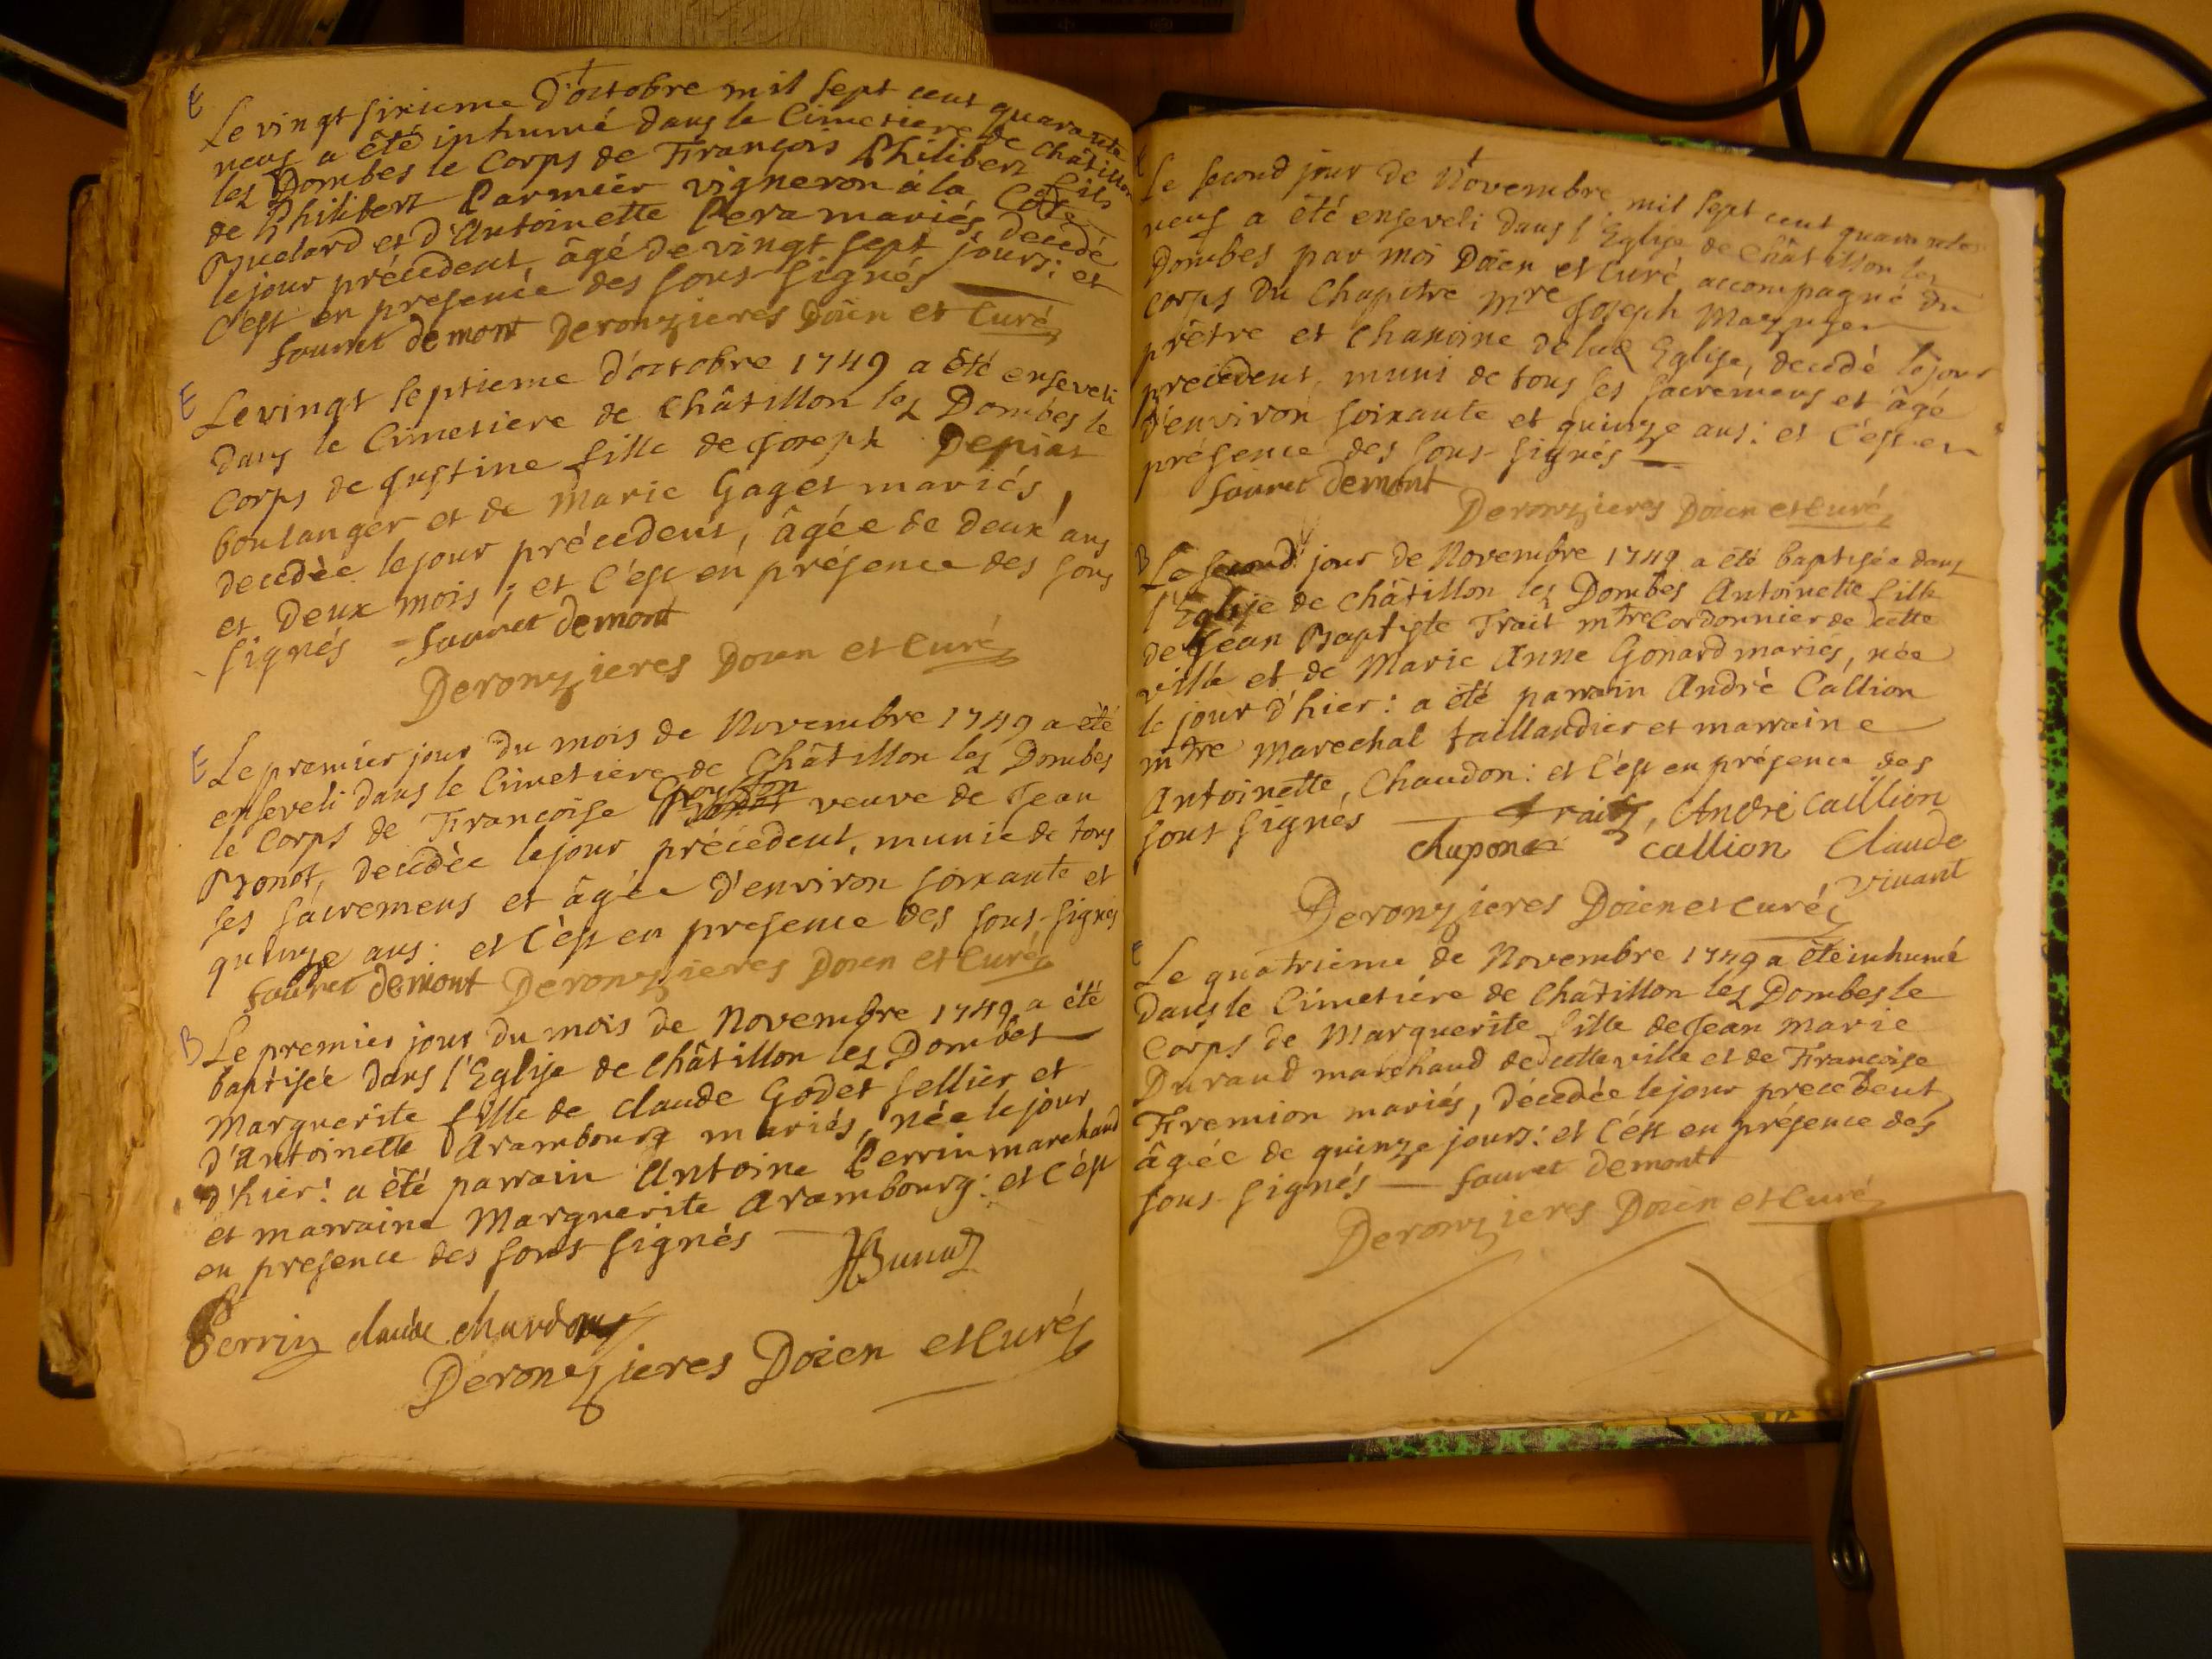 E
Le vingt sixieme d'octobre mil sept cent quarante
neuf a été inhumé dans le Cimetiere de Châtillon
les Dombes le Corps de François Philibert fils
de Philibert Parmier vigneron à la Côte
Buclard et d'Antoinette Pera mariés, decedé
le jour précedent, âgé de vingt sept jours: et
c'est en presence des sous-signés
Sauret demont Deronzieres Doien et Curé
E
Le vingt septieme d'octobre 1749 a été enseveli
dans le Cimetiere de Châtillon les Dombes le
Corps de Justine fille de Joseph Depias
boulanger et de Marie Gaget mariés,
decedée le jour précedent, âgée de deux ans
et deux mois; et c'est en présence des sous
signés Sauret demont
Deronzieres Doien et Curé
E
Le premier jour du mois de Novembre 1749 a été
enseveli dans le Cimetiere de Châtillon les Dombes
le Corps de Françoise veuve de Jean
Bonot, decedée le jour précedent, munie de tous
ses sacremens et âgée d'environ soixante et
quinze ans: et c'est en presence des sous-signés
Sauret demont Deronzieres Doien et Curé
B
Le premier jour du mois de Novembre 1749 a été
baptisée dans l'Eglise de Châtillon les Dombes
Marguerite fille de Claude Godet sellier et
d'Antoinette Arambourg mariés, née le jour
d'hier: a été parrain Antoine Perrin marchand
et marraine Marguerite Arambourg: et c'est
en presence des sous signés
Perrin claude chardon
Deronzieres Doien et Curé
Le second jour de Novembre mil sept cent quarante
neuf a été enseveli dans l'Eglise de Châtillon les
Dombes par moi Doien et Curé accompagné du
corps du Chapitre Mre Joseph Mazuyer
prêtre et Chanoine de lad Eglise, decedé le jour
precedent, muni de tous ses sacremens et âgé
d'environ soixante et quinze ans: et c'est en
présence des sous-signés
Sauret demont
Deronzieres Doien et Curé
B
Le second jour de Novembre 1749 a été baptisée dans
l'Eglise de Châtillon les Dombes Antoinette fille
de Jean Baptiste Trait mtre Cordonnier de cette
ville et de Marie Anne Gonard mariés, née
le jour d'hier: a été parrain Andrè Callion
mtre Marechal taillandier et marraine
Antoinette Chaudon: et c'est en présence des
sous signés trait, André Caillion
chapon callion Claude
vivant
Deronzieres Doien et Curé
E
Le quatrieme de Novembre 1749 a été inhumé
dans le Cimetiere de Châtillon les Dombes le
Corps de Marguerite fille de Jean Marie
Durand marchand de cette ville et de Françoise
Fremion mariés, décedée le jour precedent,
âgée de quinze jours: et c'est en présence des
sous-signés Sauret demont
Deronzieres Doien et Curé